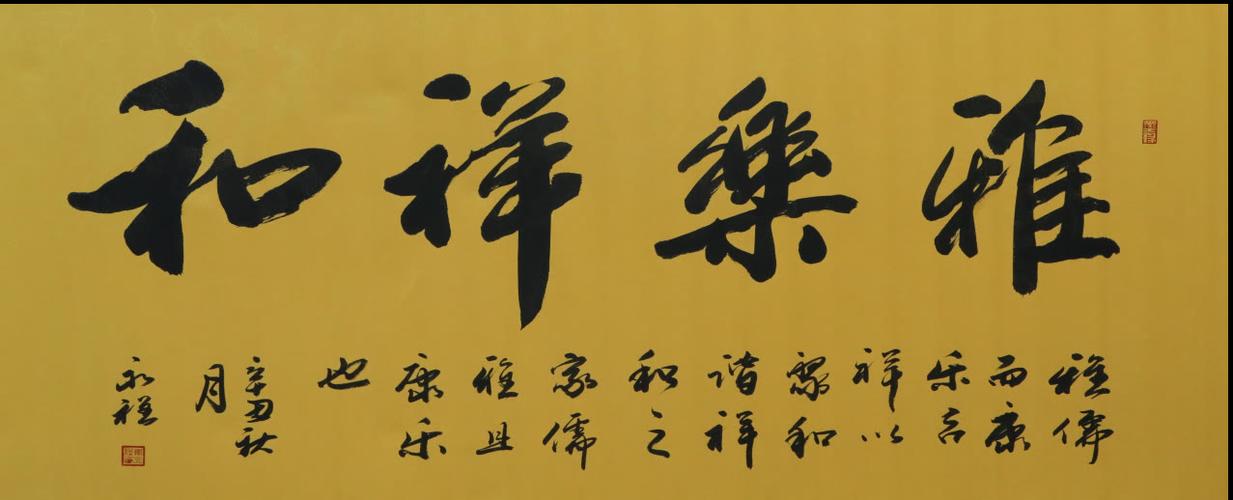 雅樂祥和
雅儒
而康
乐吉
祥以
聚和
谐祥
和之
家儒
雅且
康乐
也
辛丑秋
月
永